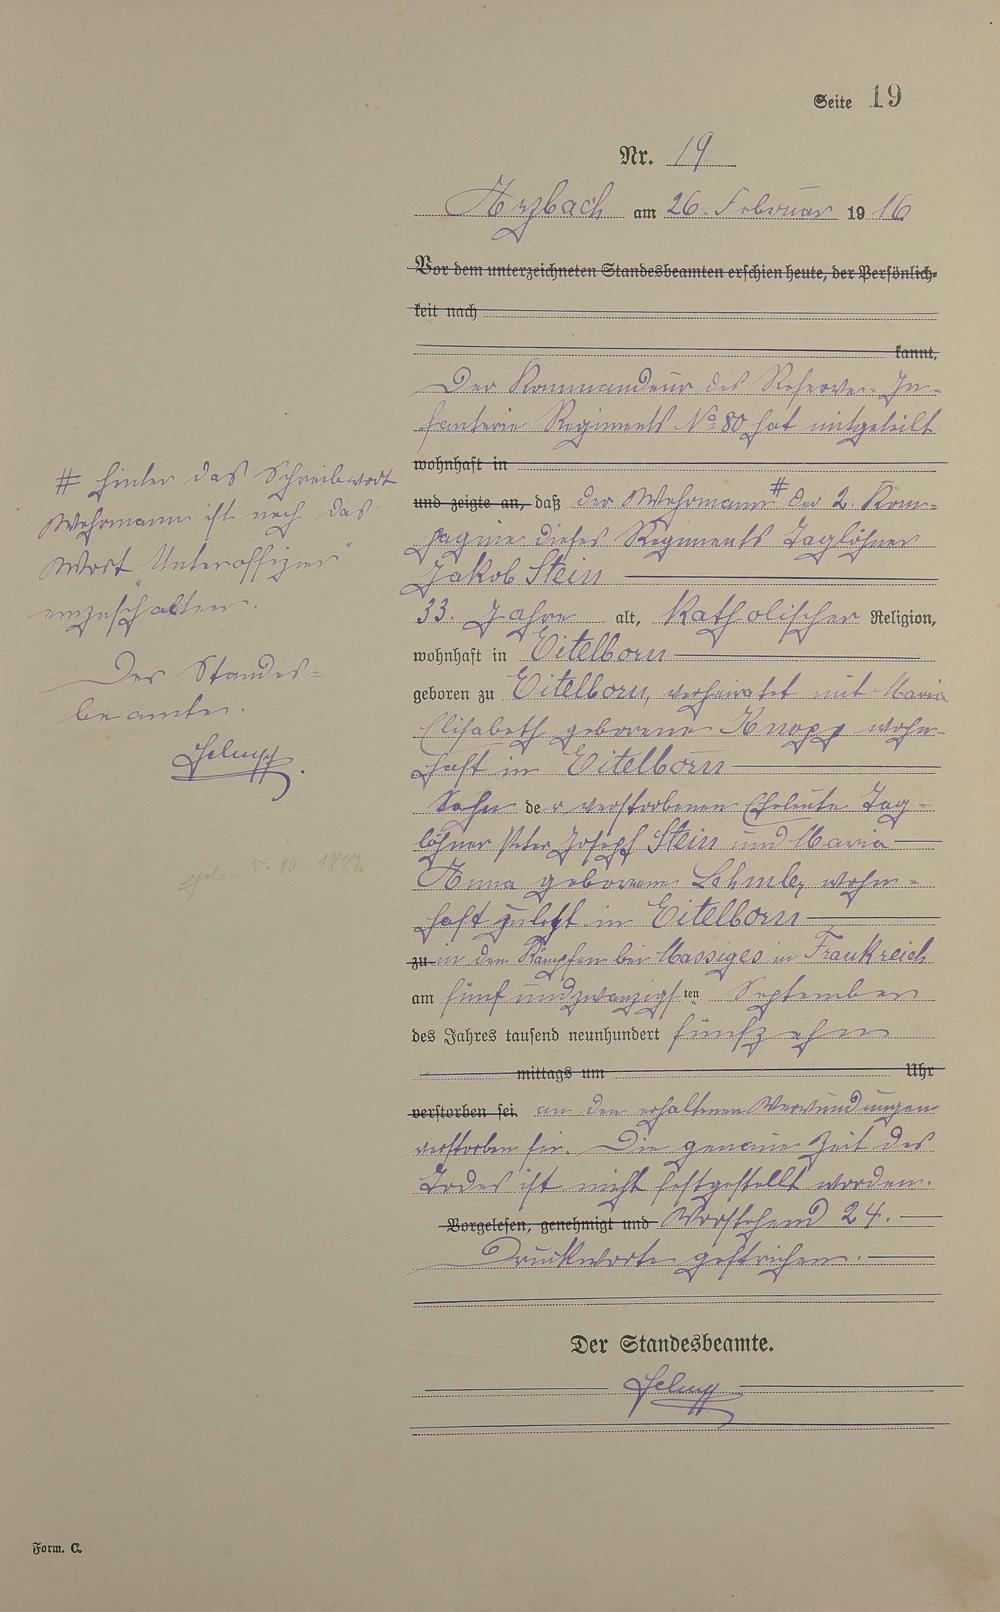 Seite 19
Nr. 19
Arzbach am 26. Februar 1916
Vor dem unterzeichneten Standesbeamten erschien heute, der Persönlich-
keit nach
kannt,
Der Kommandeur des Reserve-In-
fanterie Regiments No 80 hat mitgeteilt
wohnhaft in
und zeigte an, daß der Wehrmann # der 2. Kom-
pagnie dieses Regiments Taglöhner
Jakob Stein
33. Jahre alt, Katholischer Religion,
wohnhaft in Eitelborn
geboren zu Eitelborn, verheiratet mit Maria
Elisabeth geborene Knopp wohn-
haft in Eitelborn
Sohn der verstorbenen Eheleute Tag-
löhner Peter Joseph Stein und Maria
Anna geborenen wohn-
haft zuletzt in Eitelborn
zu in den Kämpfen bei Massiges in Frankreich
am fünf und zwanzigsten September
des Jahres tausend neunhundert fünfzehn
mittags um Uhr
verstorben sei. an den erhaltenen Verwundungen
verstorben sei. Die genaue Zeit des
Todes ist nicht festgestellt worden.
Vorgelesen, genehmigt und Vorstehend 24.
Druckworte gestrichen.
Der Standesbeamte.
# Hinter das Schreibwort
Wehrmann ist noch das
Wort "Unteroffizier"
einzuschalten.
Der Standes-
beamte.
Form. C.